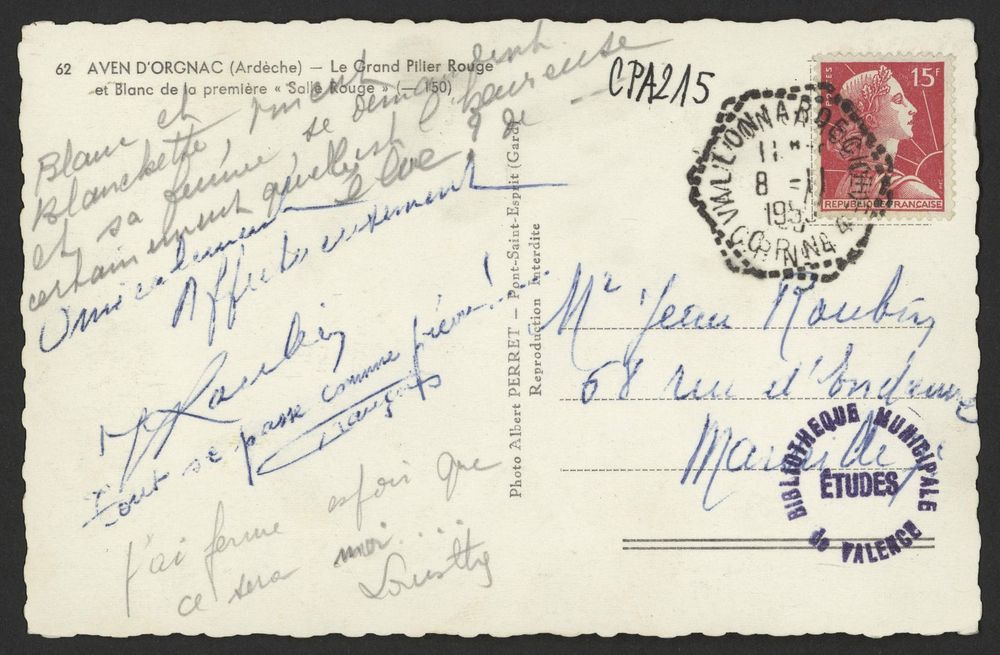 62 AVEN D'ORGNAC (Ardèche) — Le Grand Pilier Rouge
et Blanc de la première « Salle Rouge » (— 150)
CPA215
15F
POSTES
REPUBLIQUE FRANÇAISE
VALLON ARDECHE
8 - 11
195
Blanc et
Blanchette, rient
et sa femme se demandent
certainement qu'elle est l'heureuse
élue ? de —
Amicalement
Affectueusement
Roubin
Tout se passe comme prévu !
J'ai ferme espoir que
ce sera moi...
Photo Albert PERRET - Pont-Saint-Esprit (Gard)
Reproduction Interdite
Mr Jean Roubin
68 rue d'
Marseille
BIBLIOTHEQUE MUNICIPALE
ÉTUDES
de VALENCE